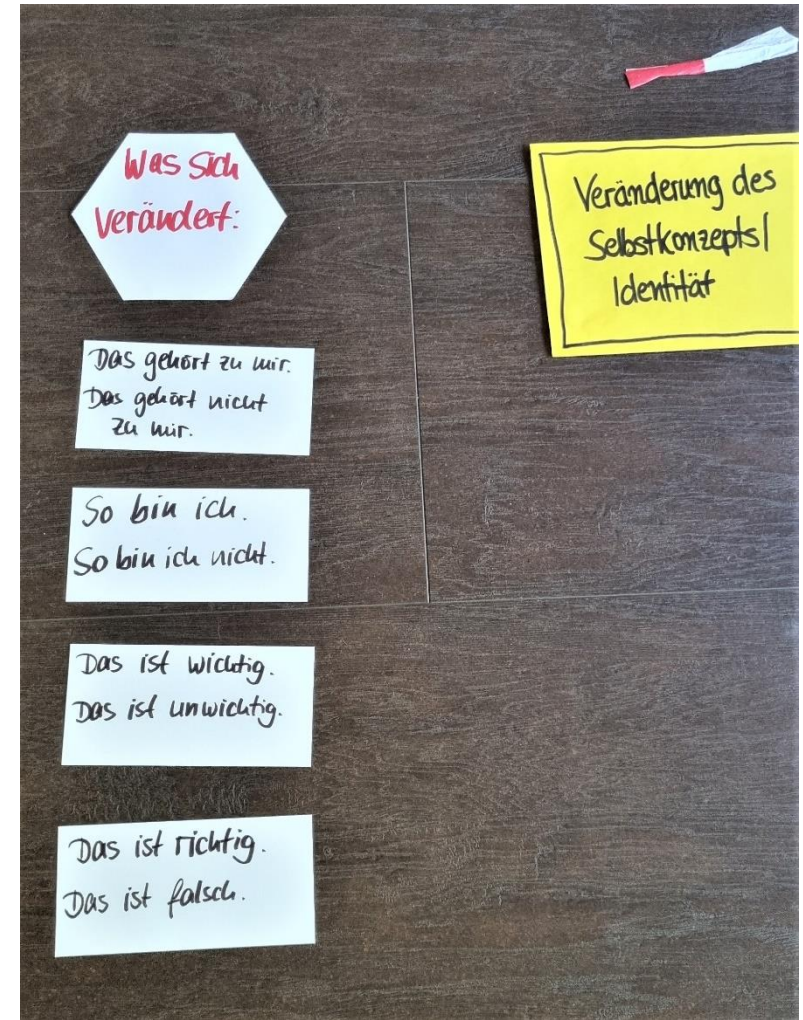 Was sich
verändert:
Veränderung des
Selbstkonzepts/
Identität
Das gehört zu mir.
Das gehört nicht
zu mir.
So bin ich.
So bin ich nicht.
Das ist wichtig.
Das ist unwichtig.
Das ist richtig.
Das ist falsch.